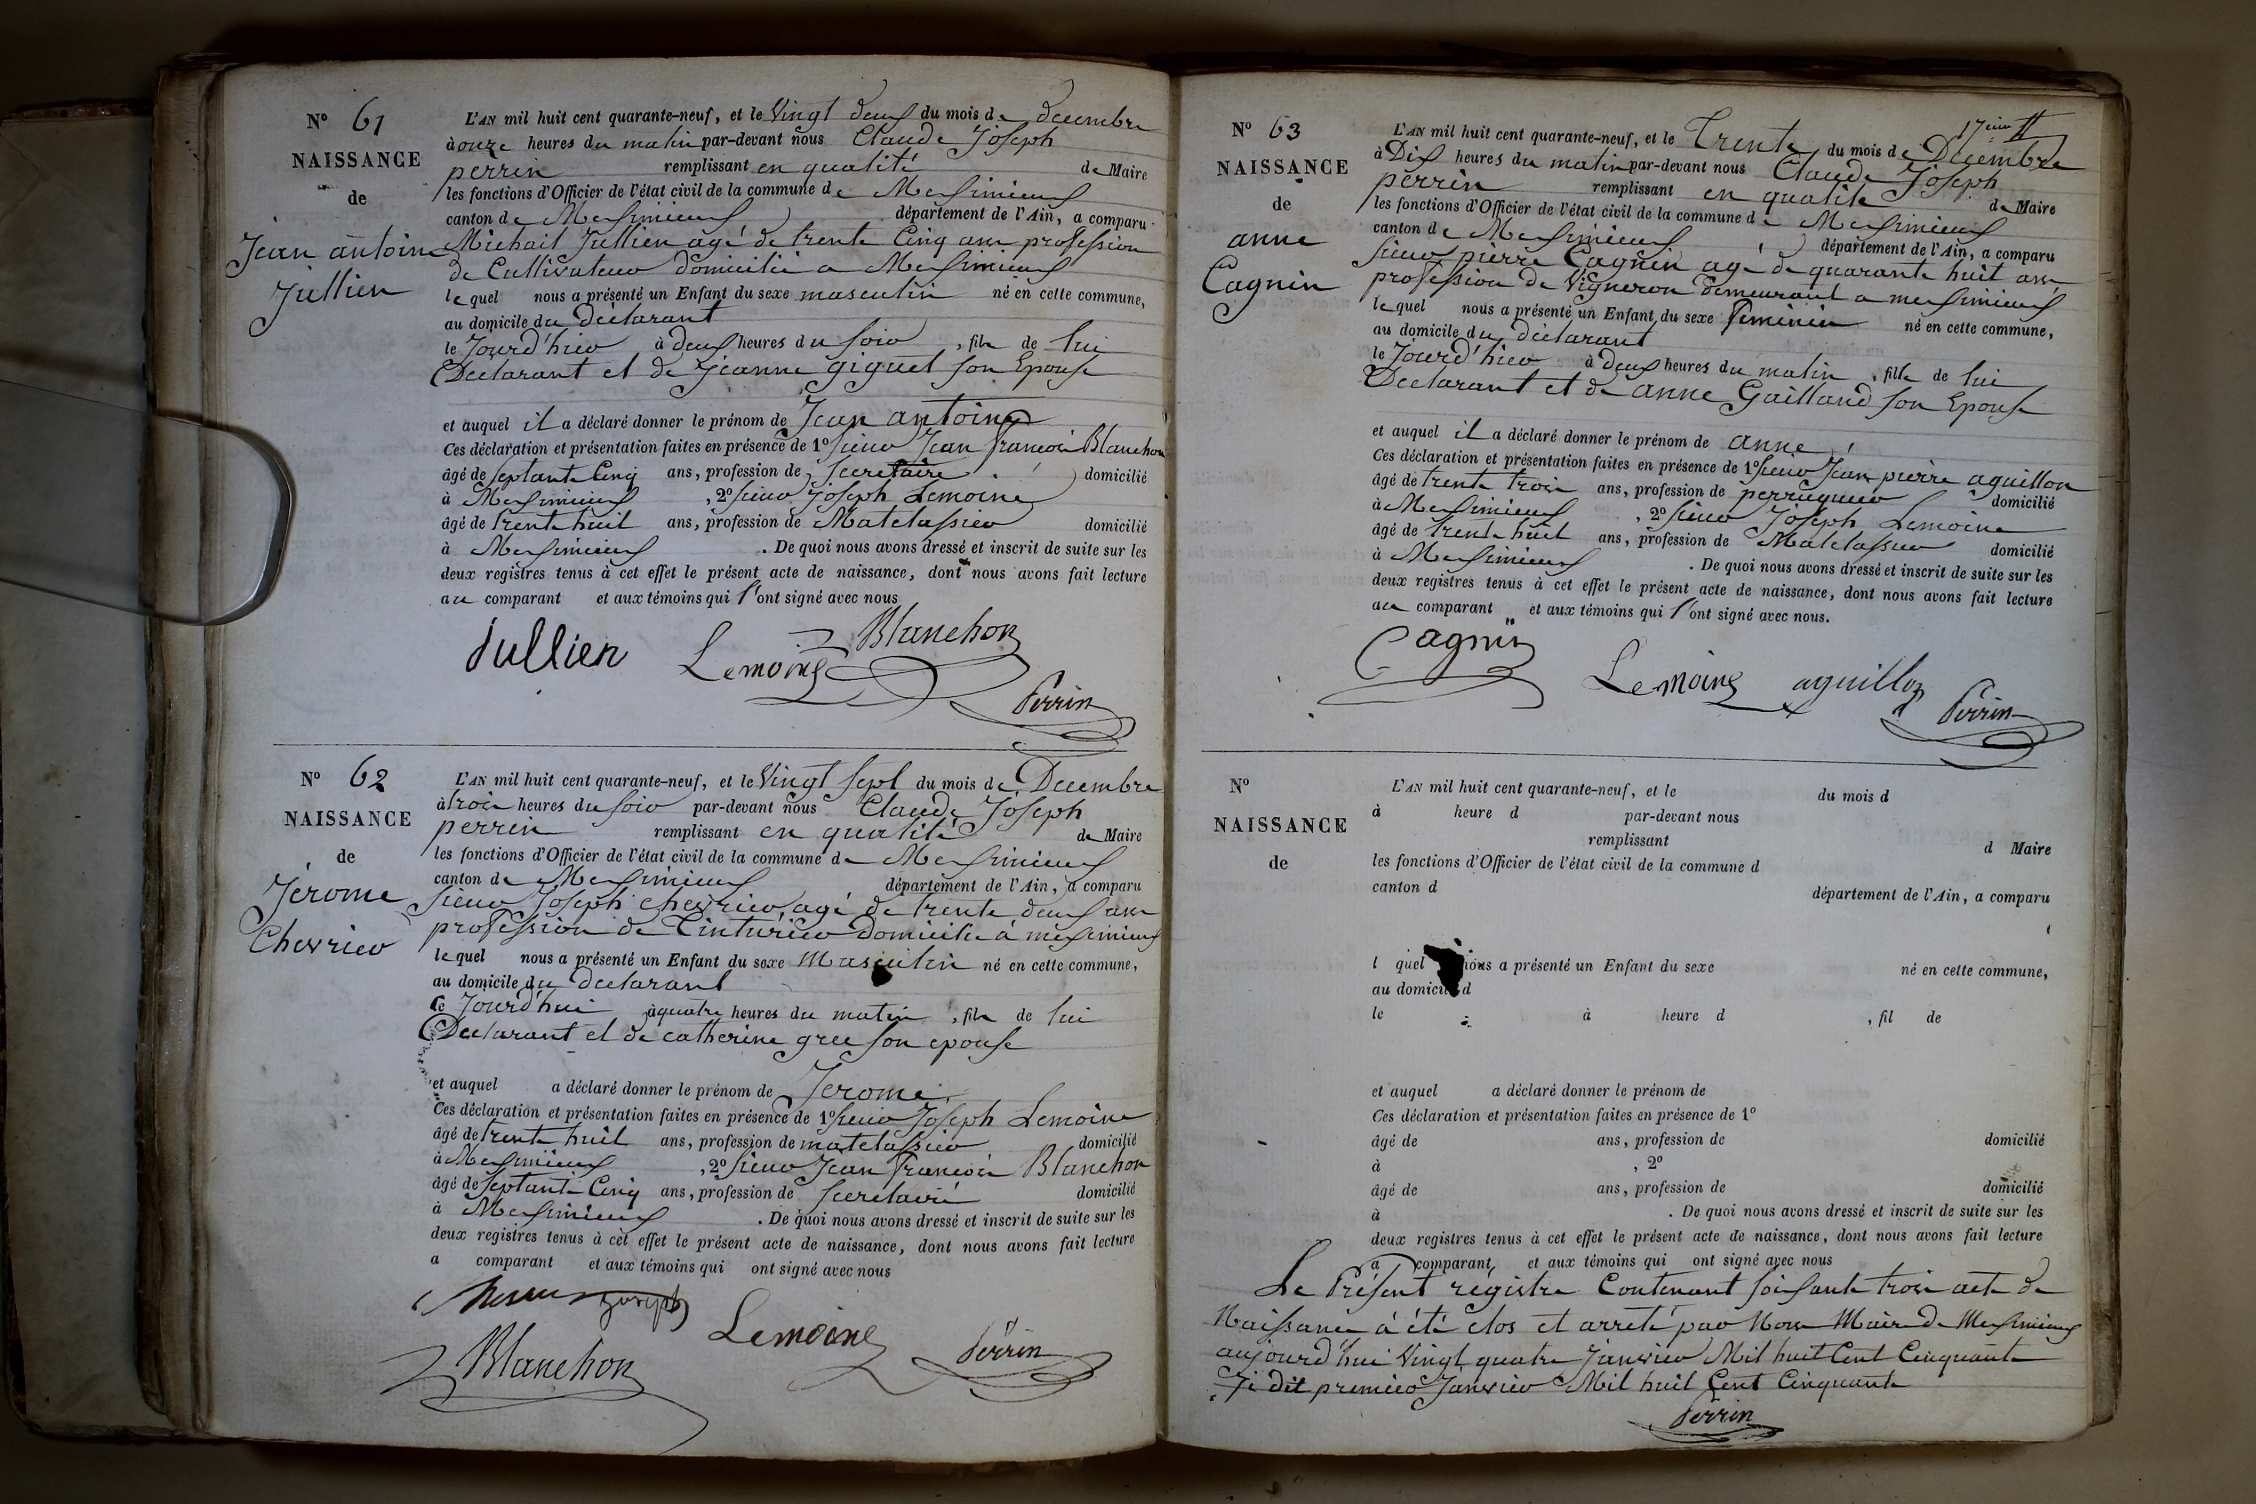 N° 61
NAISSANCE
de
Jean antoine
Jullien
L'AN mil huit cent quarante-neuf, et le Vingt deux du mois de decembre
à onze heures du matin par-devant nous Claude Joseph
perrin remplissant en qualité de Maire
les fonctions d'Officier de l'état civil de la commune de Meximieux
canton de Meximieux département de l'Ain, a comparu
Michait Jullien agé de trente Cinq ans profession
de Cultivateur domicilié a Meximieux
lequel nous a présenté un Enfant du sexe masculin né en cette commune,
au domicile du declarant
le Jourd'hier à deux heures du soir, fils de lui
Declarant et de Jeanne giguet son Epouse
et auquel il a déclaré donner le prénom de Jean antoine
Ces déclaration et présentation faites en présence de 1° sieur Jean françois Blanchon
âgé de septante Cinq ans, profession de secretaire domicilié
à Meximieux, 2° sieur Joseph Lemoine
âgé de trente huit ans, profession de Matelassier domicilié
à Meximieux. De quoi nous avons dressé et inscrit de suite sur les
deux registres tenus à cet effet le présent acte de naissance, dont nous avons fait lecture
au comparant et aux témoins qui l'ont signé avec nous
Jullien Lemoine Blanchon
Perrin
N° 62
NAISSANCE
de
Jérome
Chevrier
L'AN mil huit cent quarante-neuf, et le Vingt sept du mois de Decembre
à trois heures du soir par-devant nous Claude Joseph
perrin remplissant en qualité de Maire
les fonctions d'Officier de l'état civil de la commune de Meximieux
canton de Meximieux département de l'Ain, a comparu
sieur Joseph chevrier, agé de trente deux ans
profession de Tinturier domicilié á meximieux
lequel nous a présenté un Enfant du sexe Masculin né en cette commune,
au domicile du declarant
le Jourd'hui à quatre heures du matin, fils de lui
Declarant et de catherine gree son epouse
et auquel a déclaré donner le prénom de Jerome
Ces déclaration et présentation faites en présence de 1° sieur Joseph Lemoine
âgé de trente huit ans, profession de matelassier domicilié
à Meximieux, 2° sieur Jean françois Blanchon
âgé de septante Cinq ans, profession de secretaire domicilié
à Meximieux. De quoi nous avons dressé et inscrit de suite sur les
deux registres tenus à cet effet le présent acte de naissance, dont nous avons fait lecture
a comparant et aux témoins qui ont signé avec nous
joseph Lemoine Perrin
Blanchon
17eme
N° 63
NAISSANCE
de
anne
Cagnin
L'AN mil huit cent quarante-neuf, et le Trente du mois de Decembre
à Dix heures du matin par-devant nous Claude Joseph
perrin remplissant en qualité de Maire
les fonctions d'Officier de l'état civil de la commune de Meximieux
canton de Meximieux département de l'Ain, a comparu
sieur pierre Cagnin agé de quarante huit ans
profession de Vigneron demeurant a meximieux
lequel nous a présenté un Enfant du sexe feminin né en cette commune,
au domicile du déclarant
le Jourd'hier à deux heures du matin, fille de lui
Declarant et de anne Gailland son Epouse
et auquel il a déclaré donner le prénom de anne
Ces déclaration et présentation faites en présence de 1° sieur Jean pierre aguillon
âgé de trente trois ans, profession de perruquier domicilié
à Meximieux, 2° sieur Joseph Lemoine
âgé de trente huit ans, profession de Matelassier domicilié
à Meximieux. De quoi nous avons dressé et inscrit de suite sur les
deux registres tenus à cet effet le présent acte de naissance, dont nous avons fait lecture
au comparant et aux témoins qui l'ont signé avec nous.
Cagnin
Lemoine aguillon Perrin
N°
NAISSANCE
de
L'AN mil huit cent quarante-neuf, et le du mois d
à heure d par-devant nous
remplissant d Maire
les fonctions d'Officier de l'état civil de la commune d
canton d département de l'Ain, a comparu
l quel nous a présenté un Enfant du sexe né en cette commune,
au domicile d
le à heure d, fil de
et auquel a déclaré donner le prénom de
Ces déclaration et présentation faites en présence de 1°
âgé de ans, profession de domicilié
à, 2°
âgé de ans, profession de domicilié
à. De quoi nous avons dressé et inscrit de suite sur les
deux registres tenus à cet effet le présent acte de naissance, dont nous avons fait lecture
a comparant et aux témoins qui ont signé avec nous
Le Présent régistre Contenant soixante trois acte de
Naissance à été clos et arreté par Nous Maire de Meximieux
aujourd'hui Vingt quatre Janvier Mil huit Cent Cinquante
Je dit premier Janvier Mil huit Cent Cinquante
Perrin